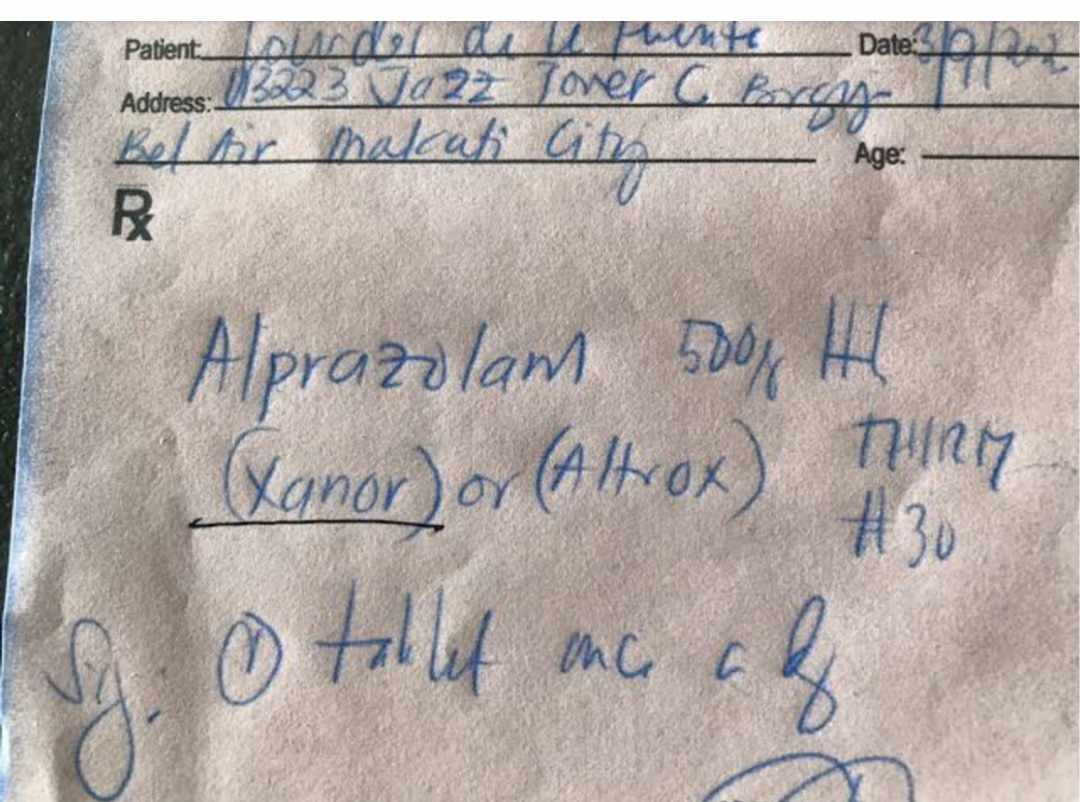 Patient: Lourdes de la Fuente Date: 3/9/202
Address: 3223 Jazz Tower C Brgy.
Bel Air Makati City Age:
Rx
Alprazolam 500
(Xanor) or (Altrox) THIRTY
#30
Sig. 1 tablet once a day